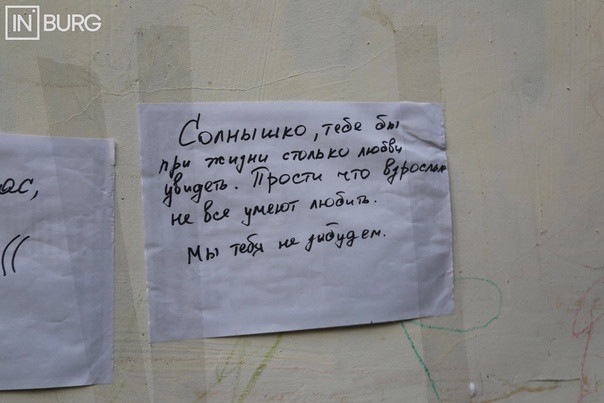 IN BURG
Солнышко, тебе бы
при жизни столько любви
увидеть. Прости что взрослые
не все умеют любить.
Мы тебя не забудем.
ас,
((